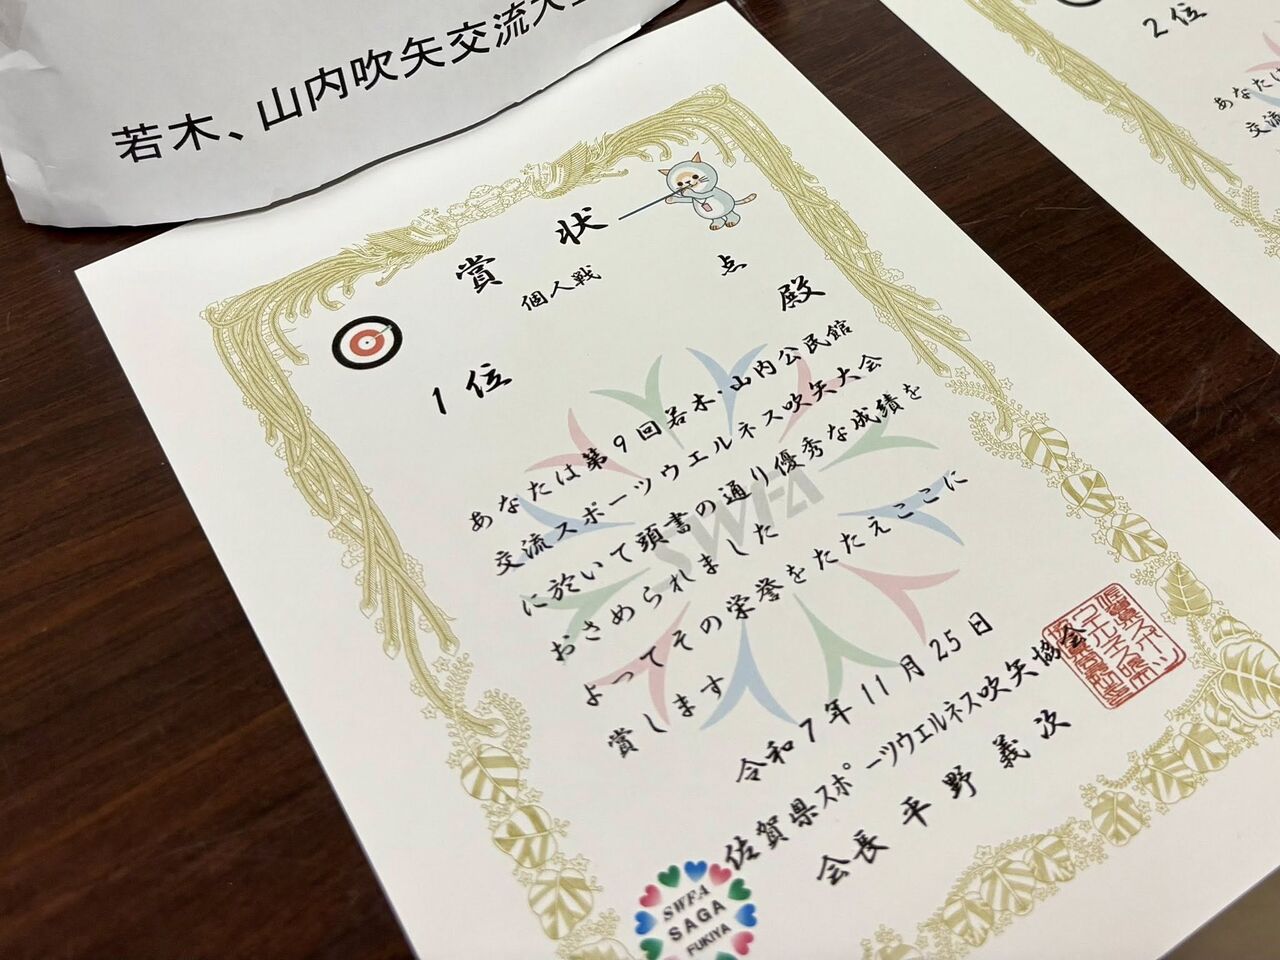 若木、山内吹矢交流大
賞状
個人戦
点
1位
殿
あなたは第9回若木・山内公民館
交流スポーツウエルネス吹矢大会
に於いて頭書の通り優秀な成績を
おさめられました
よってその栄誉をたたえここに
賞します
令和7年11月25日
佐賀県スポーツウェルネス吹矢協会
会長 平野義次
SWFA
SWFA
SAGA
FUKIYA
2位
あなたは
交流